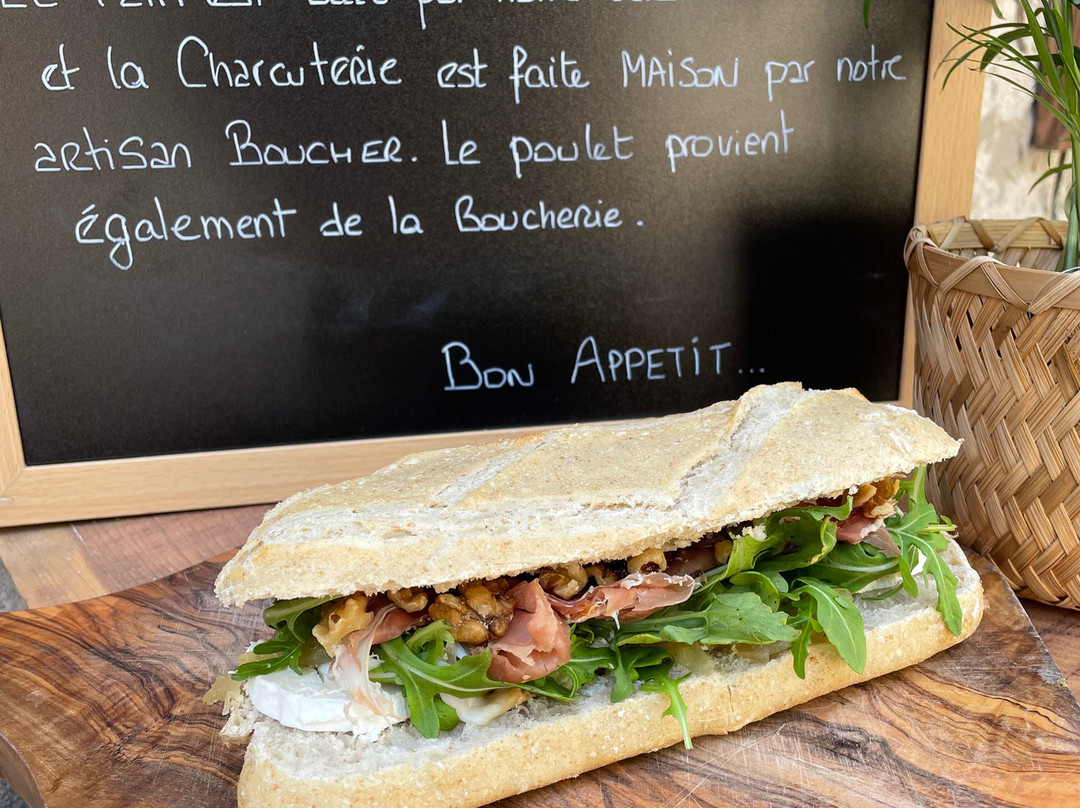 et la Charcuterie est faite MAISON par notre
artisan BOUCHER. Le poulet provient
également de la Boucherie.
BON APPETIT...